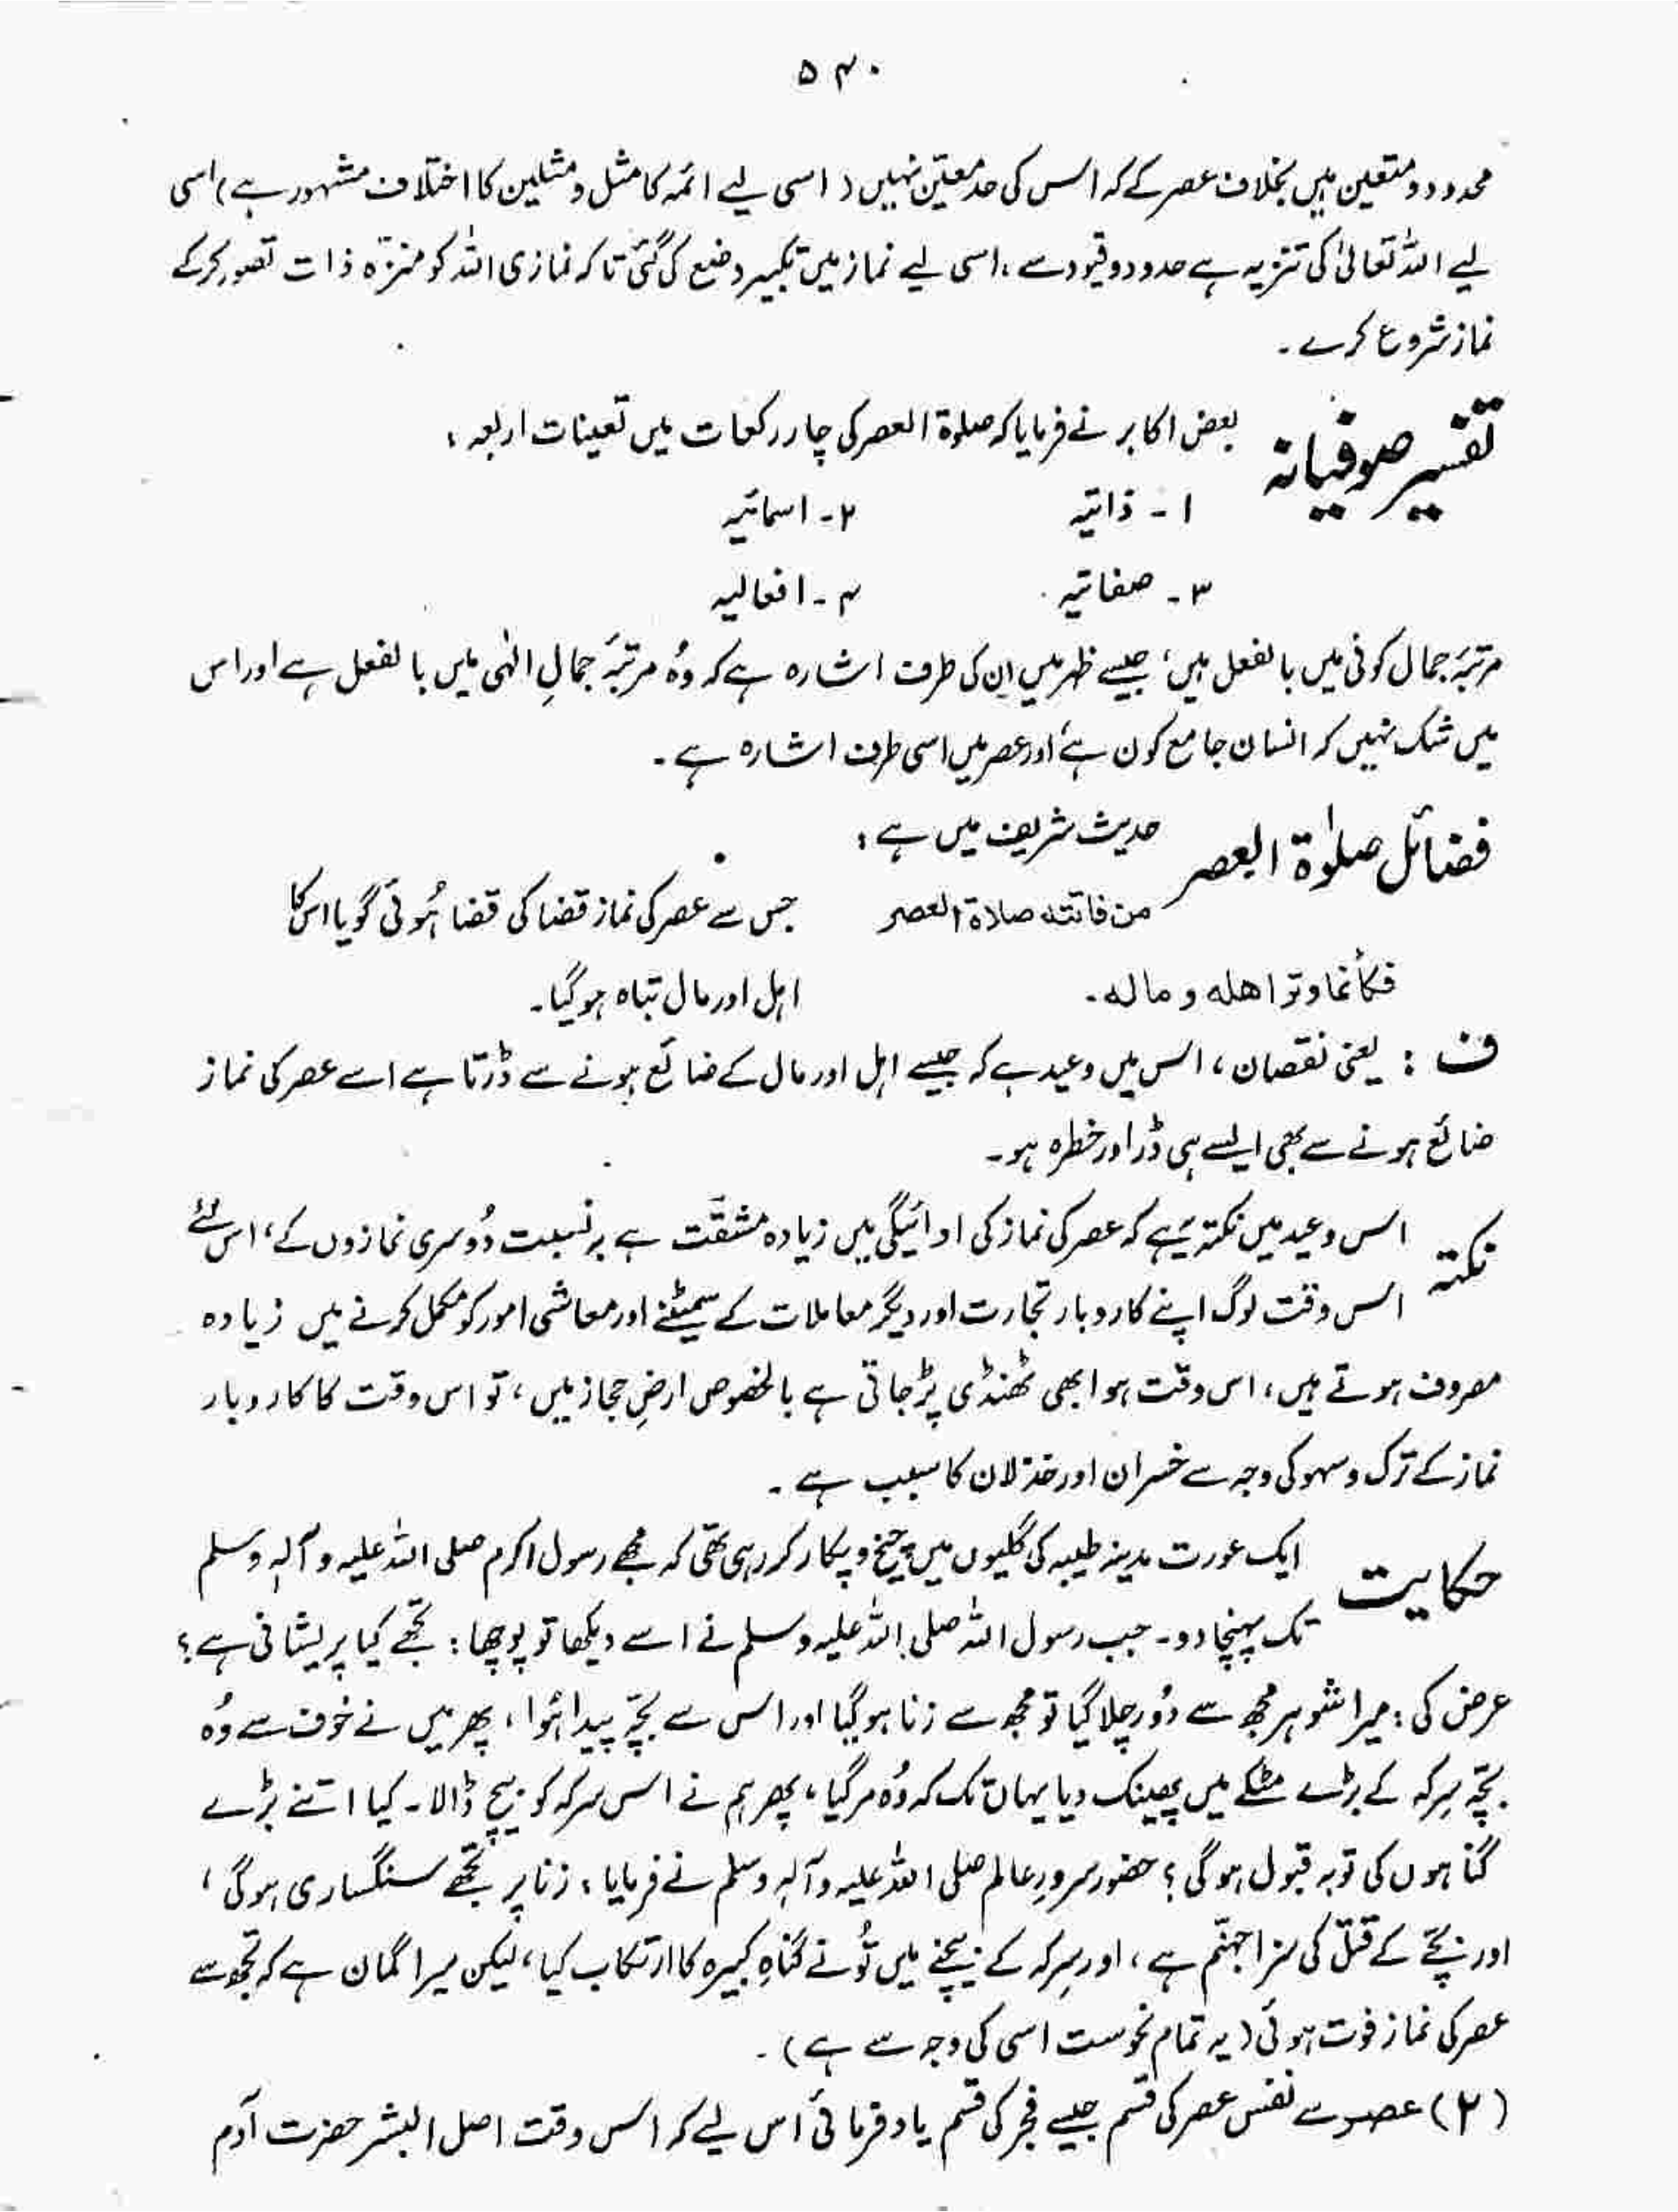 ۵۴۰
محدود و متعین ہیں بخلاف عصر کے کہ اس کی حد معیّن نہیں ( اسی لیے ائمہ کا مثل و مثلین کا اختلاف مشہور ہے ) اسی
لیے اللہ تعالیٰ کی تنزیہ ہے حدود و قیود سے ، اسی لیے نماز میں تکبیر وضع کی گئی تا کہ نمازی اللہ کو منزّہ ذات تصور کر کے
نماز شروع کرے ۔
تفسیر صوفیانہ بعض اکابر نے فرمایا کہ صلوۃ العصر کی چار رکعات میں تعینات اربعہ :
۱ - ذاتیہ ۲ - اسمائیہ
۳ - صفاتیہ ۴ - افعالیہ
مرتبۂ جمال کونی میں بالفعل ہیں ، جیسے ظہر میں ان کی طرف اشارہ ہے کہ وُہ مرتبۂ جمالِ الٰہی میں بالفعل ہے اور اس
میں شک نہیں کہ انسان جامع کون ہے اور عصر میں اسی طرف اشارہ ہے ۔
فضائل صلوٰۃ العصر حدیث شریف میں ہے :
من فاتته صلاة العصر جس سے عصر کی نماز قضا کی قضا ہُوئی گویا اس کا
فكأنما وتر اهله و ماله ۔ اہل اور مال تباہ ہو گیا ۔
ف : یعنی نقصان ، اس میں وعید ہے کہ جیسے اہل اور مال کے ضائع ہونے سے ڈرتا ہے اسے عصر کی نماز
ضائع ہونے سے بھی ایسے ہی ڈر اور خطرہ ہو ۔
نکتہ اس وعید میں نکتہ یہ ہے کہ عصر کی نماز کی ادائیگی میں زیادہ مشقّت ہے بہ نسبت دُوسری نمازوں کے ، اس لئے
اس وقت لوگ اپنے کاروبار تجارت اور دیگر معاملات کے سمیٹنے اور معاشی امور کو مکمل کرنے میں زیادہ
مصروف ہوتے ہیں ، اس وقت ہوا بھی ٹھنڈی پڑ جاتی ہے بالخصوص ارضِ حجاز میں ، تو اس وقت کا کاروبار
نماز کے ترک و سہو کی وجہ سے خسران اور خذلان کا سبب ہے ۔
حکایت ایک عورت مدینہ طیبہ کی گلیوں میں چیخ و پکار کر رہی تھی کہ مجھے رسول اکرم صلی اللہ علیہ و آلہ وسلم
تک پہنچا دو ۔ جب رسول اللہ صلی اللہ علیہ وسلم نے اسے دیکھا تو پوچھا : تجھے کیا پریشانی ہے ؟
عرض کی : میرا شوہر مجھ سے دُور چلا گیا تو مجھ سے زنا ہو گیا اور اس سے بچّہ پیدا ہُوا ، پھر میں نے خوف سے وُہ
بچّہ سِرکہ کے بڑے مٹکے میں پھینک دیا یہاں تک کہ وُہ مر گیا ، پھر ہم نے اس سرکہ کو بیچ ڈالا ۔ کیا اتنے بڑے
گناہوں کی توبہ قبول ہوگی ؟ حضور سرورِ عالم صلی اللہ علیہ و آلہ وسلم نے فرمایا : زنا پر تجھے سنگساری ہوگی ،
اور بچّے کے قتل کی سزا جہنّم ہے ، اور سِرکہ کے بیچنے میں تُو نے گناہِ کبیرہ کا ارتکاب کیا ، لیکن میرا گمان ہے کہ تجھ سے
عصر کی نماز فوت ہوئی ( یہ تمام نحوست اسی کی وجہ سے ہے ) ۔
( ۲ ) عصر سے نفس عصر کی قسم جیسے فجر کی قسم یاد فرمائی اس لیے کہ اس وقت اصل البشر حضرت آدم